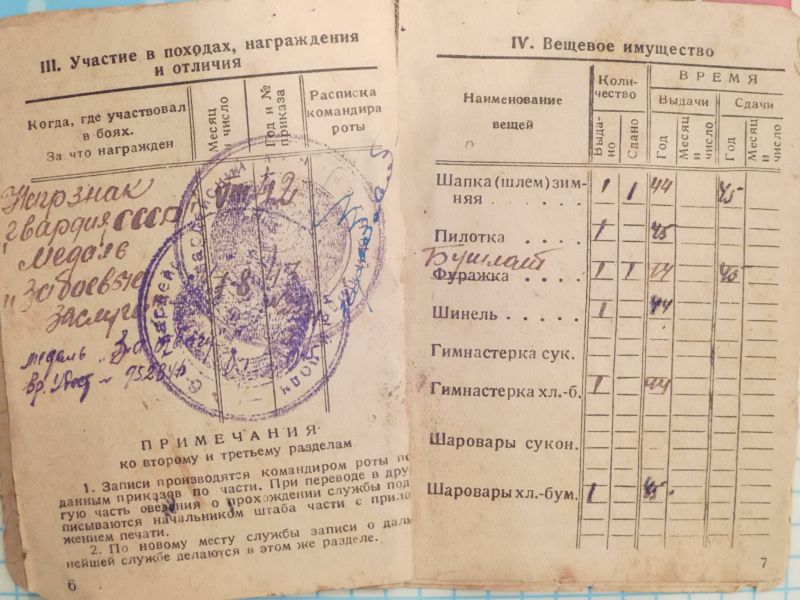 III. Участие в походах, награждения
и отличия
Когда, где участвовал
в боях.
За что награжден
Месяц
число
Год и №
приказа
Расписка
командира
роты
Нагр знак
гвардия СССР
"Медаль
"За боевые
заслуги"
медаль „За
ПРИМЕЧАНИЯ
ко второму и третьему разделам
1. Записи производятся командиром роты по
данным приказов по части. При переводе в дру-
гую часть сведения о прохождении службы под-
писываются начальником штаба части с прило-
жением печати.
2. По новому месту службы записи о даль-
нейшей службе делаются в этом же разделе.
6
IV. Вещевое имущество
Наименование
вещей
Коли-
чество
ВРЕМЯ
Выдачи
Сдачи
Выда-
но
Сдано
Год
Месяц
и
число
Год
Месяц
и
число
Шапка (шлем) зим-
няя . . . . . 1 1 44 45
Пилотка . . . . 1 45
Бушлат
Фуражка . . . . 1 1 44 45
Шинель . . . . . 1 44
Гимнастерка сук.
Гимнастерка хл.-б. 1 44
Шаровары сукон.
Шаровары хл.-бум. 1 45
7